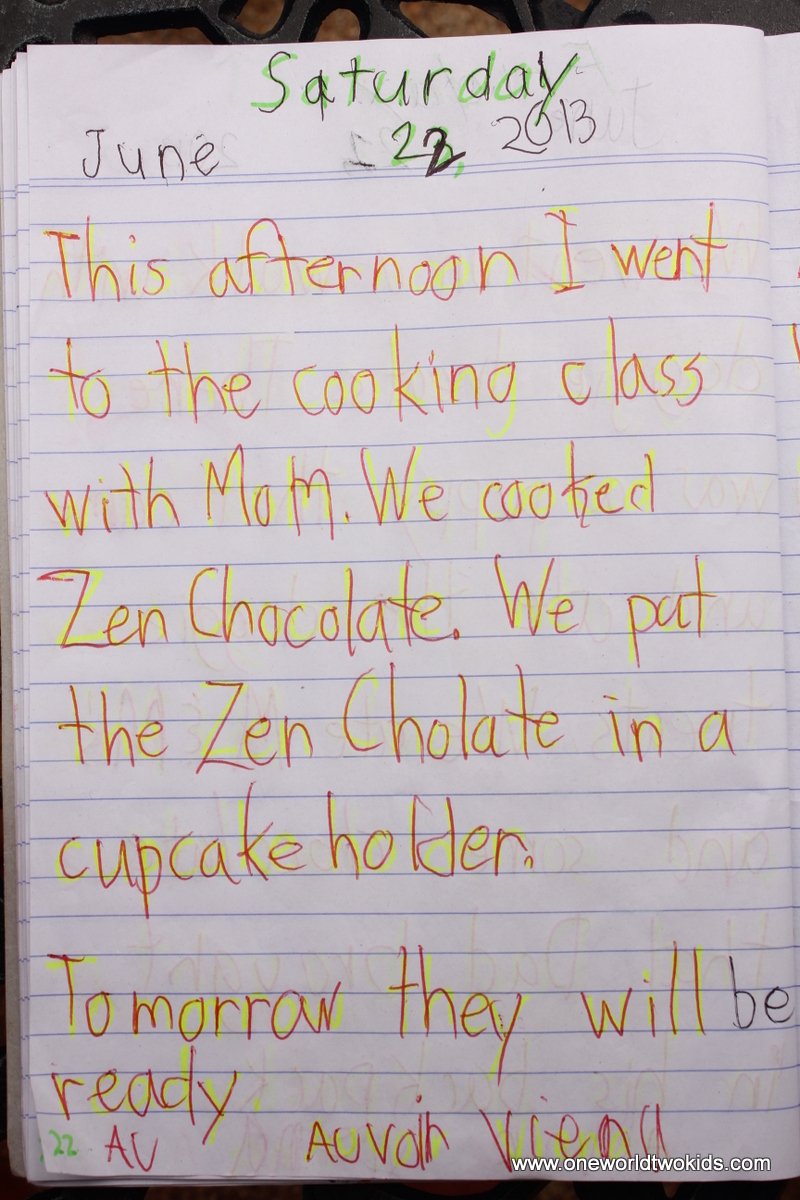 Saturday
June 22, 2013
This afternoon I went
to the cooking class
with MoM. We cooked
Zen Chocolate. We put
the Zen Cholate in a
cupcake holder.
Tomorrow they will be
ready
22 AV Auvoih Viena
www.oneworldtwokids.com